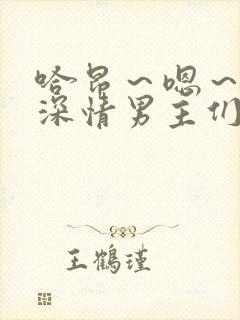 哈昂~嗯~
深情男主们
王鹤瑾